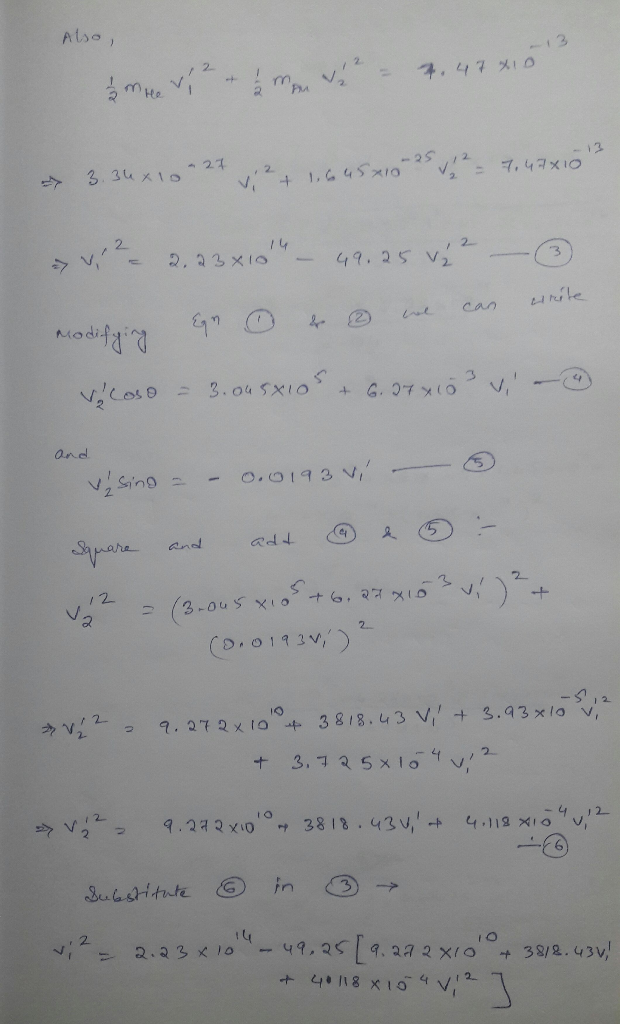 Also,
½ m_He v₁'² + ½ m_Au v₂'² = 7.47 x10⁻¹³
⇒ 3.34 x 10⁻²⁷ v₁'² + 1.645x10⁻²⁵ v₂'² = 7.47x10⁻¹³
⇒ v₁'² = 2.23x10¹⁴ - 49.25 v₂'² — ③
Modifying Eqn ① & ② we can write
v₂'cosθ = 3.045x10⁵ + 6.27x10⁻³ v₁' — ④
and
v₂'sinθ = - 0.0193 v₁' — ⑤
Square and add ④ & ⑤ :-
v₂'² = (3.045 x10⁵ + 6.27 x10⁻³ v₁')² +
(0.0193v₁')²
⇒ v₂'² = 9.272x10¹⁰ + 3818.43 v₁' + 3.93x10⁻⁵ v₁'²
+ 3.725x10⁻⁴ v₁'²
⇒ v₂'² = 9.272x10¹⁰ + 3818.43v₁' + 4.118 x10⁻⁴ v₁'²
— ⑥
Substitute ⑥ in ③ →
v₁'² = 2.23 x 10¹⁴ - 49.25 [9.272x10¹⁰ + 3818.43v₁'
+ 4.118 x10⁻⁴ v₁'²]